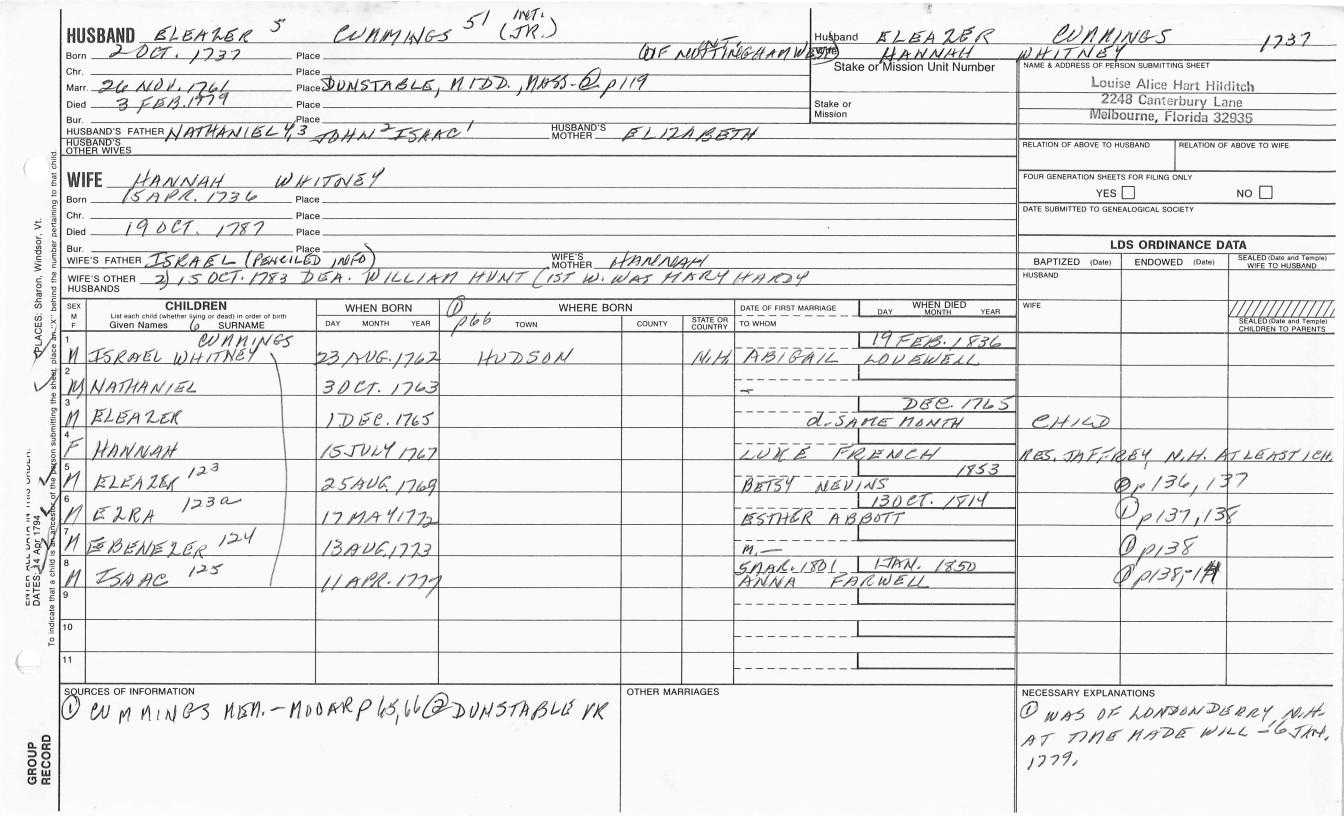 HUSBAND ELEAZER 5 CUMMINGS 51 INT. (JR.)
Born 2 OCT. 1737 Place INT. (OF NOTTINGHAM WEST)
Chr. Place
Marr. 26 NOV. 1761 Place DUNSTABLE, MIDD., MASS. ② p119
Died 3 FEB. 1779 Place
Bur. Place
HUSBAND'S FATHER NATHANIEL 4,3 JOHN 2 ISAAC 1 HUSBAND'S MOTHER ELIZABETH
HUSBAND'S OTHER WIVES
Husband ELEAZER CUMMINGS 1737
Wife HANNAH WHITNEY
Stake or Mission Unit Number
Stake or Mission
NAME & ADDRESS OF PERSON SUBMITTING SHEET
Louise Alice Hart Hilditch
2248 Canterbury Lane
Melbourne, Florida 32935
RELATION OF ABOVE TO HUSBAND RELATION OF ABOVE TO WIFE
FOUR GENERATION SHEETS FOR FILING ONLY
YES NO
DATE SUBMITTED TO GENEALOGICAL SOCIETY
WIFE HANNAH WHITNEY
Born 15 APR. 1736 Place
Chr. Place
Died 19 OCT. 1787 Place
Bur. Place
WIFE'S FATHER ISRAEL (PENCILED INFO) WIFE'S MOTHER HANNAH
WIFE'S OTHER HUSBANDS 2) 15 OCT. 1783 DEA. WILLIAM HUNT (1ST W. WAS MARY HARDY
LDS ORDINANCE DATA
BAPTIZED (Date) ENDOWED (Date) SEALED (Date and Temple) WIFE TO HUSBAND
HUSBAND
WIFE
SEALED (Date and Temple) CHILDREN TO PARENTS
SEX M F
CHILDREN
List each child (whether living or dead) in order of birth
Given Names 6 SURNAME
WHEN BORN
DAY MONTH YEAR
① p66
WHERE BORN
TOWN COUNTY STATE OR COUNTRY
DATE OF FIRST MARRIAGE
TO WHOM
WHEN DIED
DAY MONTH YEAR
1 CUMMINGS 19 FEB. 1836
M ISRAEL WHITNEY 23 AUG. 1762 HUDSON N.H. ABIGAIL LOVEWELL
2
M NATHANIEL 3 OCT. 1763 —
3 DEC. 1765
M ELEAZER 1 DEC. 1765 d. SAME MONTH CHILD
4
F HANNAH 15 JULY 1767 LUKE FRENCH RES. JAFFREY, N.H. AT LEAST 1 CH.
5 1853
M ELEAZER 123 25 AUG. 1769 BETSY NEVINS ① p136, 137
6 13 OCT. 1814
M EZRA 123a 17 MAY 1772 ESTHER ABBOTT ① p137, 138
7
M EBENEZER 124 13 AUG. 1773 m. — ① p138
8 5 MAR. 1801 1 JAN. 1850
M ISAAC 125 11 APR. 1777 ANNA FARWELL ① p138,-
9
10
11
SOURCES OF INFORMATION
① CUMMINGS MEM.-MOOAR p 65,66 ② DUNSTABLE VR
OTHER MARRIAGES
NECESSARY EXPLANATIONS
① WAS OF LONDONDERRY, N.H.
AT TIME MADE WILL - 6 JAN.
1779.
ENTER ALL DATA IN THIS ORDER:
DATES: 14 Apr 1794
PLACES: Sharon, Windsor, Vt.
To indicate that a child is an ancestor of the person submitting the sheet, place an "X" behind the number pertaining to that child.
GROUP
RECORD